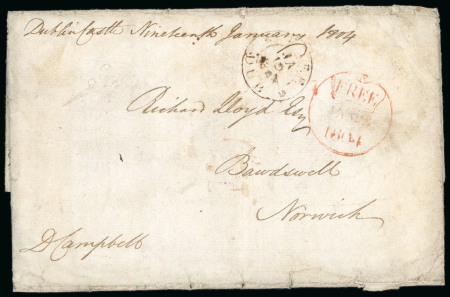 Dublin Castle Nineteenth January 1804
FREE
1804
Richard Lloyd Esq
Bawdswell
Norwich
D Campbell